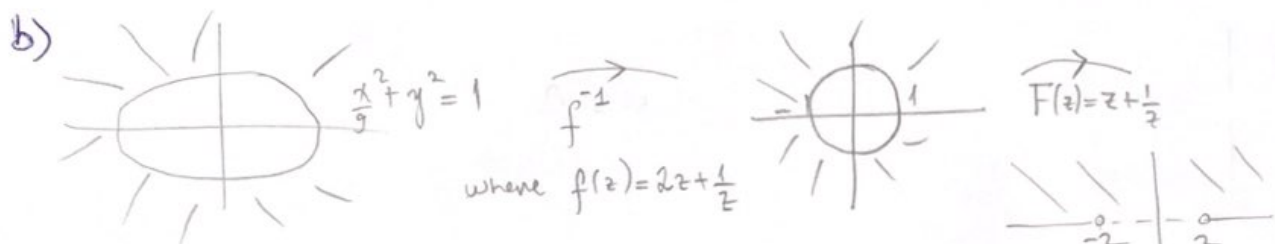 b)
x²/9 + y² = 1
f⁻¹
where f(z) = 2z + 1/z
1
F(z) = z + 1/z
-2 2